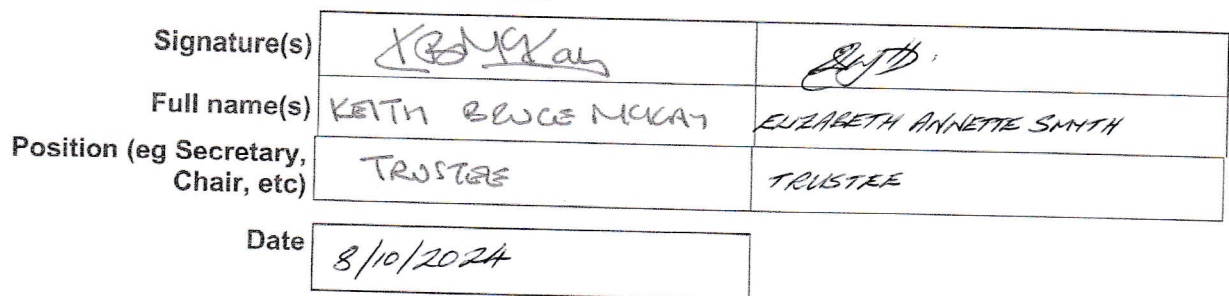 Signature(s) KBMcKay
Full name(s) KEITH BRUCE MCKAY ELIZABETH ANNETTE SMYTH
Position (eg Secretary,
Chair, etc) TRUSTEE TRUSTEE
Date 8/10/2024